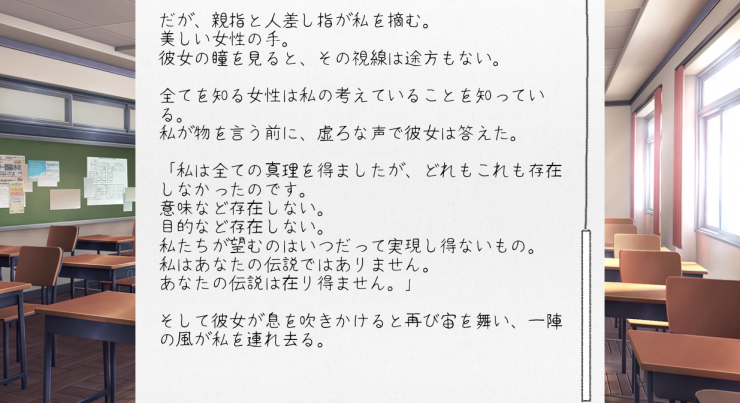 だが、親指と人差し指が私を摘む。
美しい女性の手。
彼女の瞳を見ると、その視線は途方もない。
全てを知る女性は私の考えていることを知ってい
る。
私が物を言う前に、虚ろな声で彼女は答えた。
「私は全ての真理を得ましたが、どれもこれも存在
しなかったのです。
意味など存在しない。
目的など存在しない。
私たちが望むのはいつだって実現し得ないもの。
私はあなたの伝説ではありません。
あなたの伝説は在り得ません。」
そして彼女が息を吹きかけると再び宙を舞い、一陣
の風が私を連れ去る。